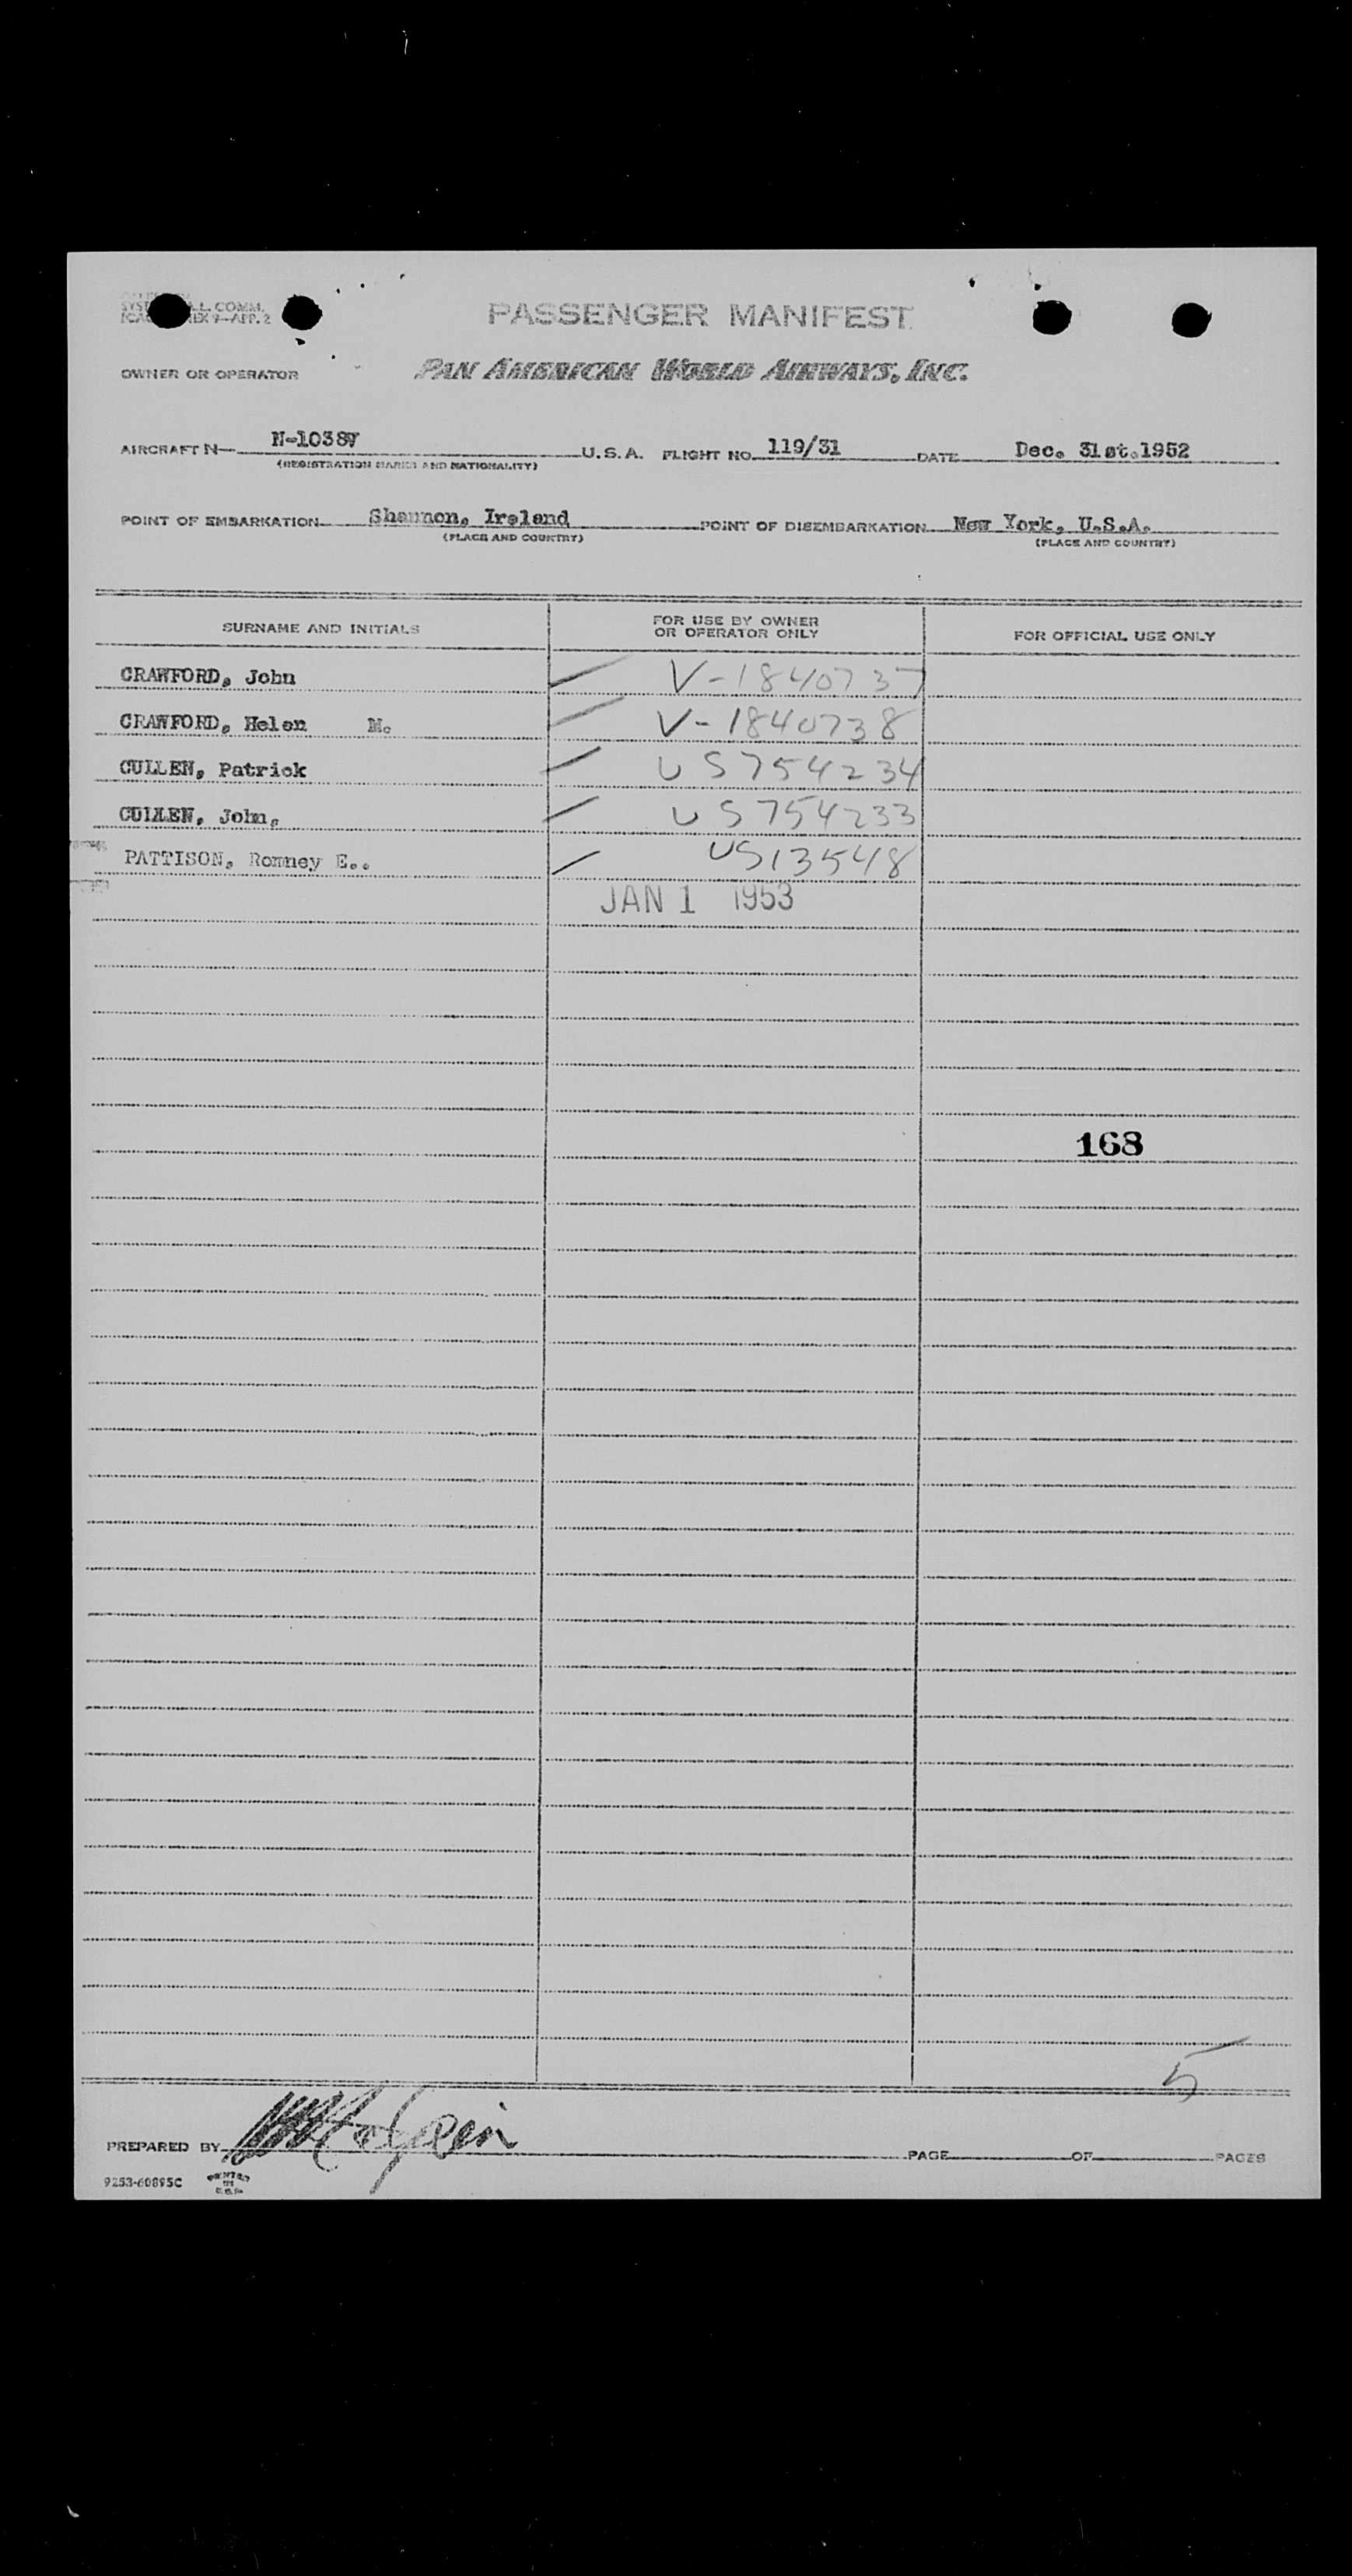 SYST L. COMM.
ICAO EX 9-APP. 2
PASSENGER MANIFEST
OWNER OR OPERATOR PAN AMERICAN WORLD AIRWAYS, INC.
AIRCRAFT N- N-1038V U.S.A. FLIGHT NO. 119/31 DATE Dec. 31st.1952
(REGISTRATION MARKS AND NATIONALITY)
POINT OF EMBARKATION Shannon, Ireland POINT OF DISEMBARKATION New York, U.S.A.
(PLACE AND COUNTRY) (PLACE AND COUNTRY)
SURNAME AND INITIALS FOR USE BY OWNER OR OPERATOR ONLY FOR OFFICIAL USE ONLY
CRAWFORD, John V-1840737
CRAWFORD, Helen M. V-1840738
CULLEN, Patrick US754234
CULLEN, John, US754233
PATTISON, Romney E.. US13548
JAN 1 1953
168
5
PREPARED BY PAGE OF PAGES
9253-60895C PRINTED IN U.S.A.